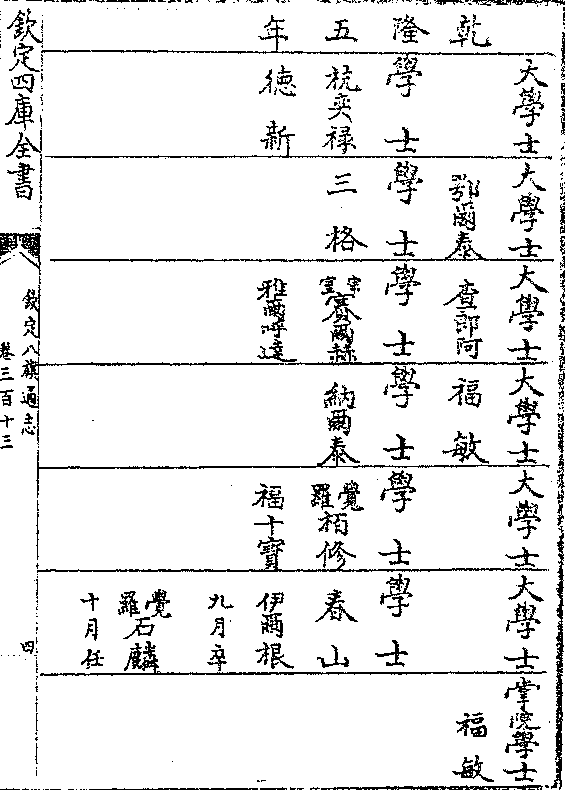 乾隆五年
大學士
學士
杭奕禄
徳新
大學士
鄂爾泰
學士
三格
大學士
查郎阿
學士
宗室賽爾赫
雅爾呼達
大學士
福敏
學士
納爾泰
大學士
學士
覺羅栢修
福十寶
大學士
學士
春山
伊爾根
九月卒
覺羅石麟
十月任
掌院學士
福敏
欽定四庫全書
欽定八旗通志
卷三百十三
四